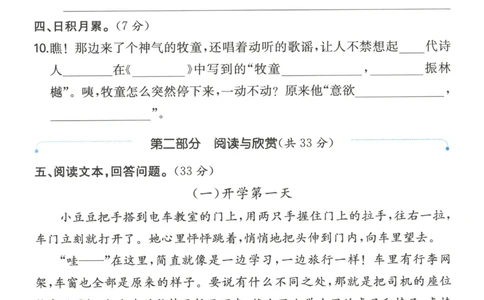 四、日积月累。(7 分)
10.瞧！那边来了个神气的牧童,还唱着动听的歌谣,让人不禁想起____代诗
人________在《________》中写到的“牧童____________,________振林
樾”。咦,牧童怎么突然停下来,一动不动？原来他“意欲______________,
________________”。
第二部分 阅读与欣赏(共 33 分)
五、阅读文本,回答问题。(33 分)
(一)开学第一天
小豆豆把手搭到电车教室的门上,用两只手握住门上的拉手,往右一拉,
车门立刻就打开了。她心里怦怦跳着,悄悄地把头伸到门内,向车里望去。
“哇——”在这里,简直就像是一边学习,一边旅行一样！车里有行李网
架,车窗也全部是原来的样子。要说有什么不同之处,那就是把司机的座位